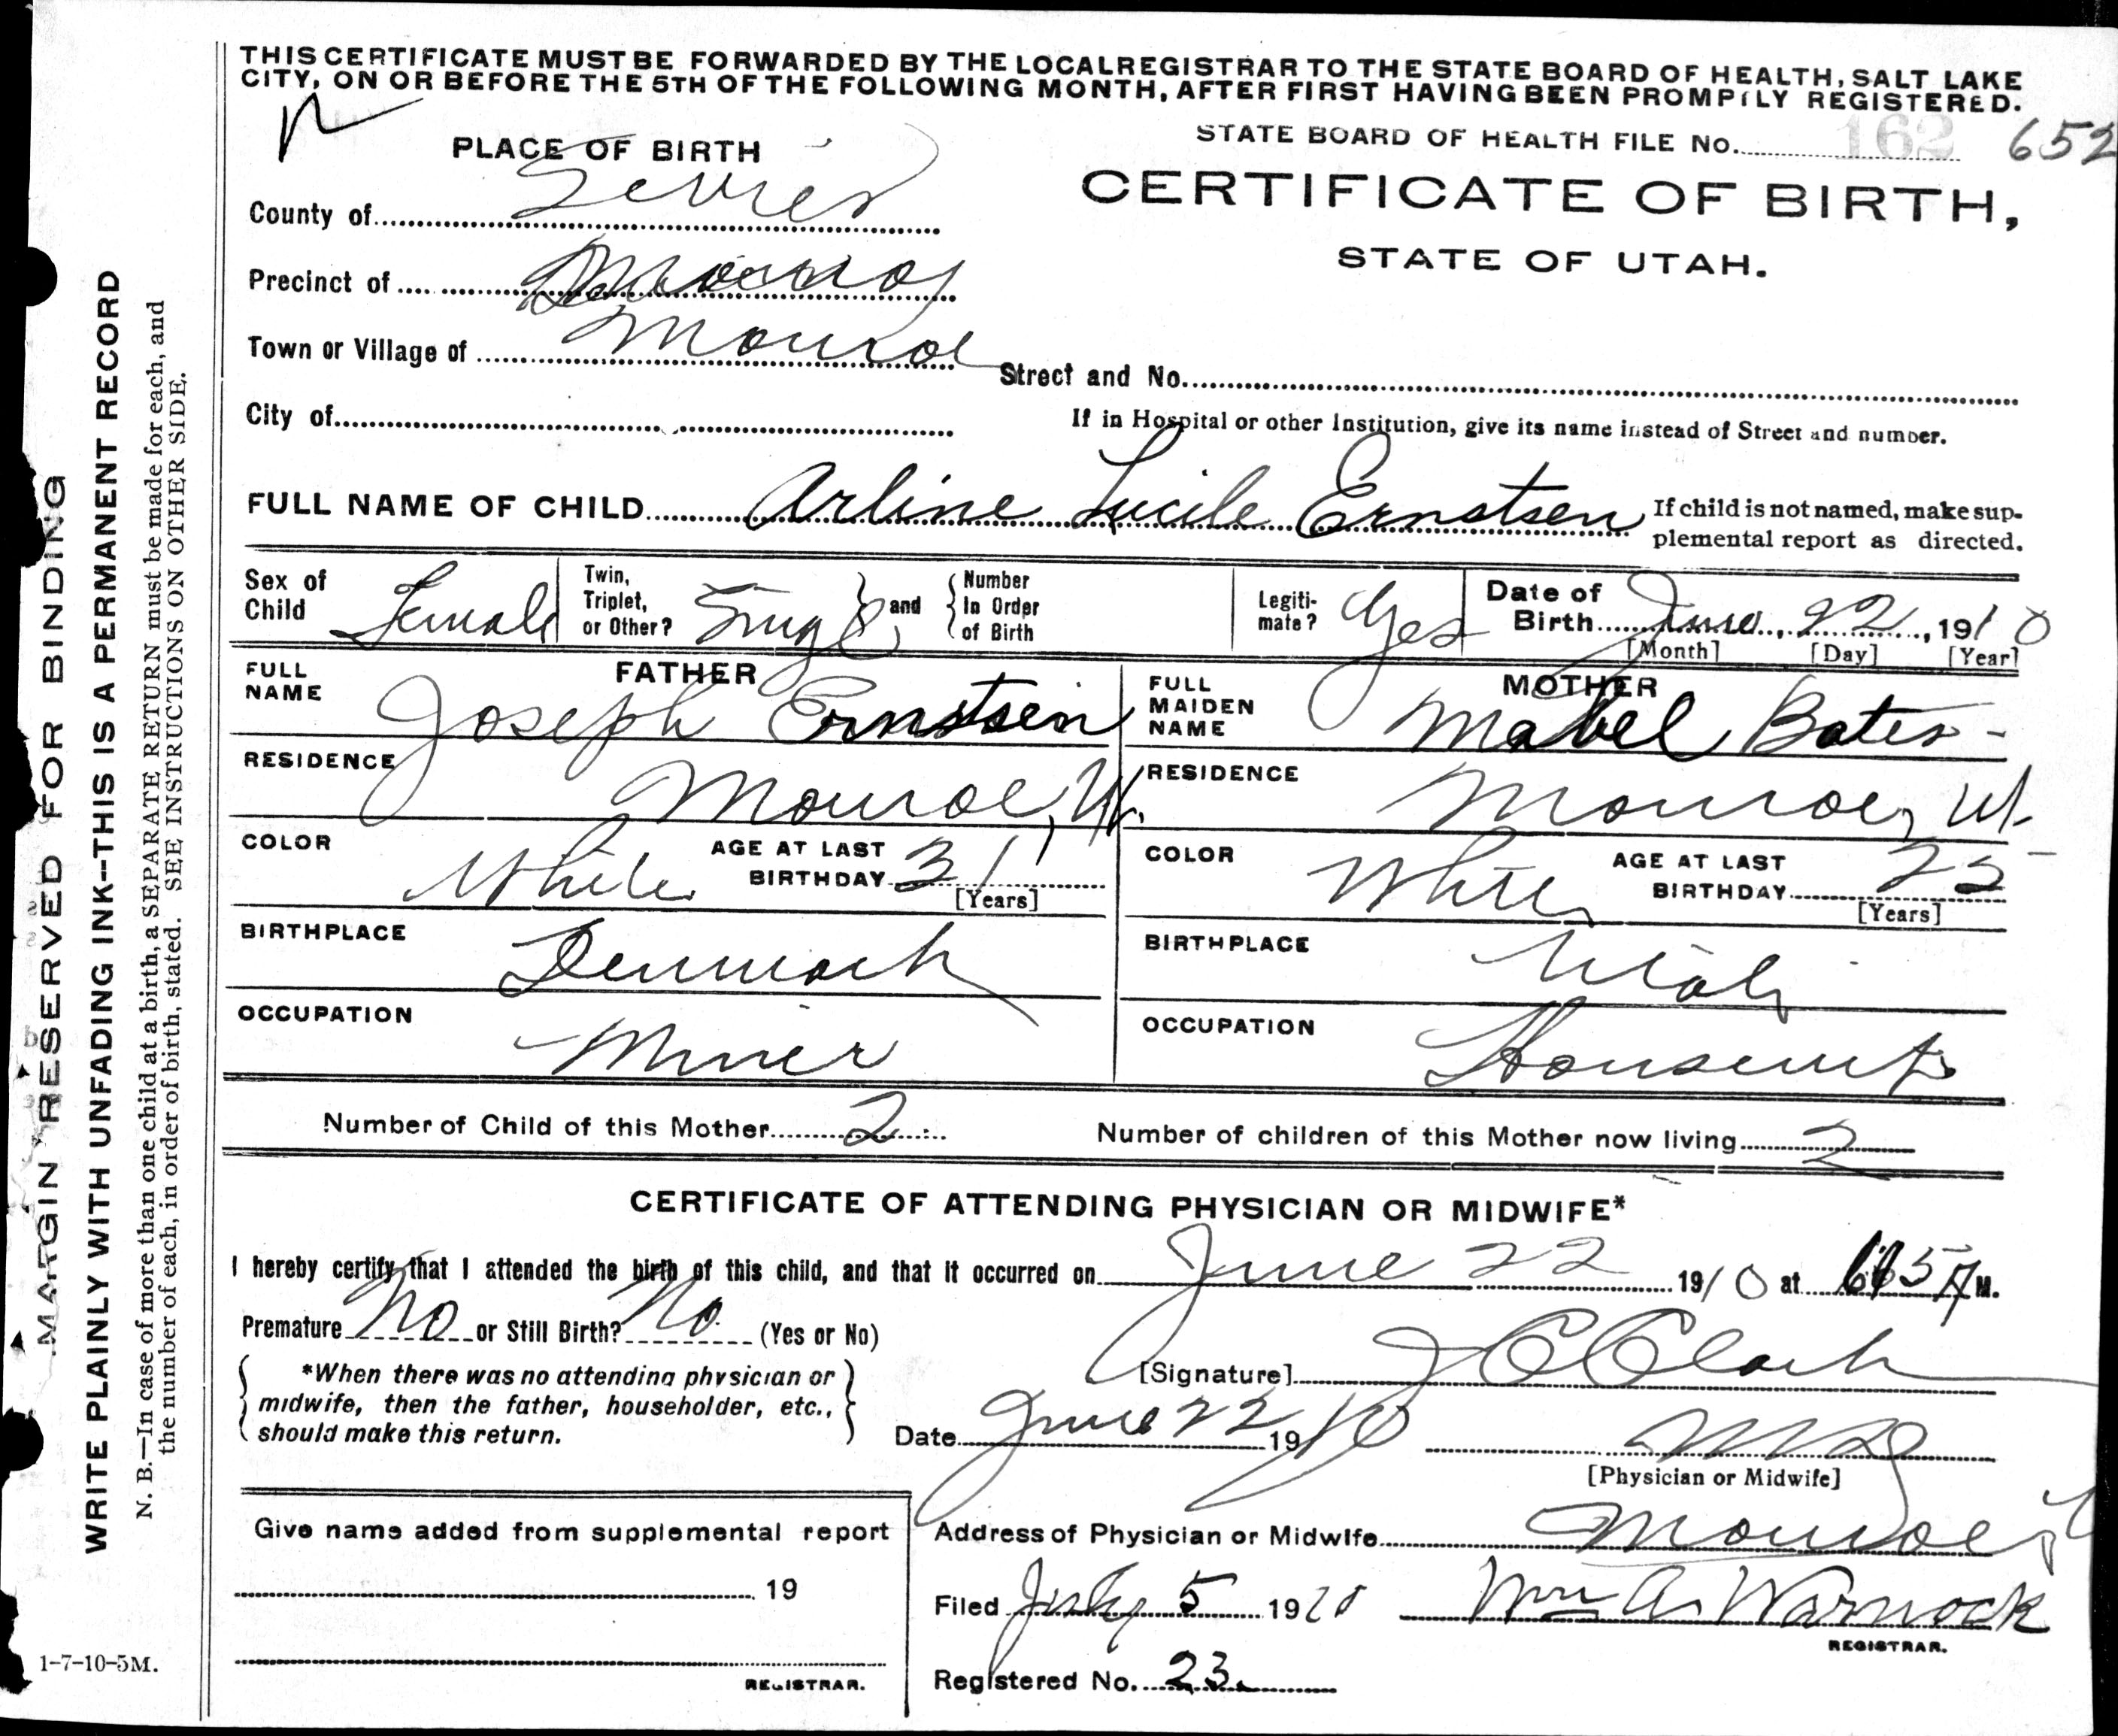 THIS CERTIFICATE MUST BE FORWARDED BY THE LOCAL REGISTRAR TO THE STATE BOARD OF HEALTH, SALT LAKE
CITY, ON OR BEFORE THE 5TH OF THE FOLLOWING MONTH, AFTER FIRST HAVING BEEN PROMPTLY REGISTERED.
PLACE OF BIRTH
STATE BOARD OF HEALTH FILE NO. 162 652
County of Sevier
CERTIFICATE OF BIRTH,
STATE OF UTAH.
Precinct of
Town or Village of Monroe
Street and No.
City of
If in Hospital or other Institution, give its name instead of Street and number.
FULL NAME OF CHILD Arline Lucile Ernstsen
If child is not named, make sup-
plemental report as directed.
Sex of Child Female
Twin, Triplet, or Other? Single and Number In Order of Birth
Legiti-mate? Yes
Date of Birth June, 22, 1910
[Month] [Day] [Year]
FATHER
FULL NAME Joseph Ernstsen
MOTHER
FULL MAIDEN NAME Mabel Bates
RESIDENCE Monroe, Ut.
RESIDENCE Monroe, Ut.
COLOR White
AGE AT LAST BIRTHDAY 31
[Years]
COLOR White
AGE AT LAST BIRTHDAY 25
[Years]
BIRTHPLACE Denmark
BIRTHPLACE Utah
OCCUPATION Miner
OCCUPATION Housewife
Number of Child of this Mother 2
Number of children of this Mother now living 2
CERTIFICATE OF ATTENDING PHYSICIAN OR MIDWIFE*
I hereby certify that I attended the birth of this child, and that it occurred on June 22 1910 at A M.
Premature No or Still Birth? No. (Yes or No)
*When there was no attending physician or
midwife, then the father, householder, etc.,
should make this return.
[Signature] J E Clark
Date June 22 1910
MD
[Physician or Midwife]
Give name added from supplemental report
19
REGISTRAR.
Address of Physician or Midwife Monroe Ut
Filed July 5 1910 Wm A. Warnock
REGISTRAR.
Registered No. 23.
MARGIN RESERVED FOR BINDING
WRITE PLAINLY WITH UNFADING INK--THIS IS A PERMANENT RECORD
N. B.—In case of more than one child at a birth, a SEPARATE RETURN must be made for each, and
the number of each, in order of birth, stated. SEE INSTRUCTIONS ON OTHER SIDE.
1-7-10-5M.